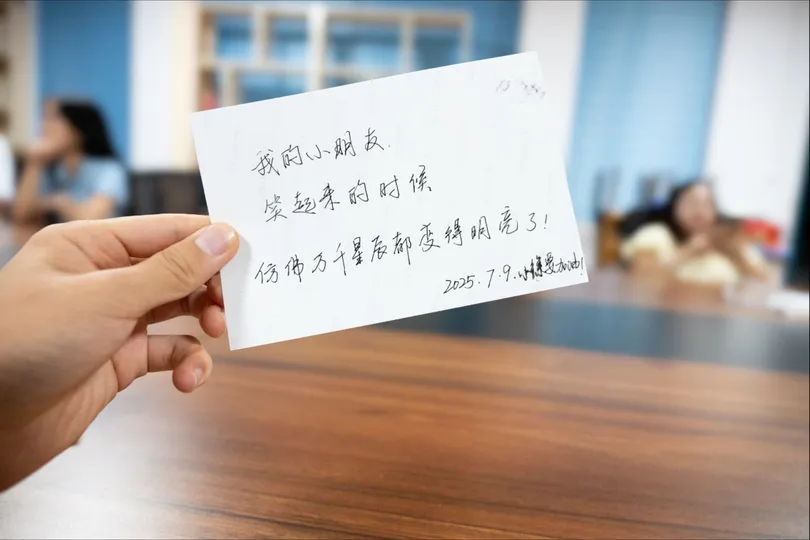 我的小朋友.
笑起来的时候
仿佛万千星辰都变得明亮了!
2025.7.9.